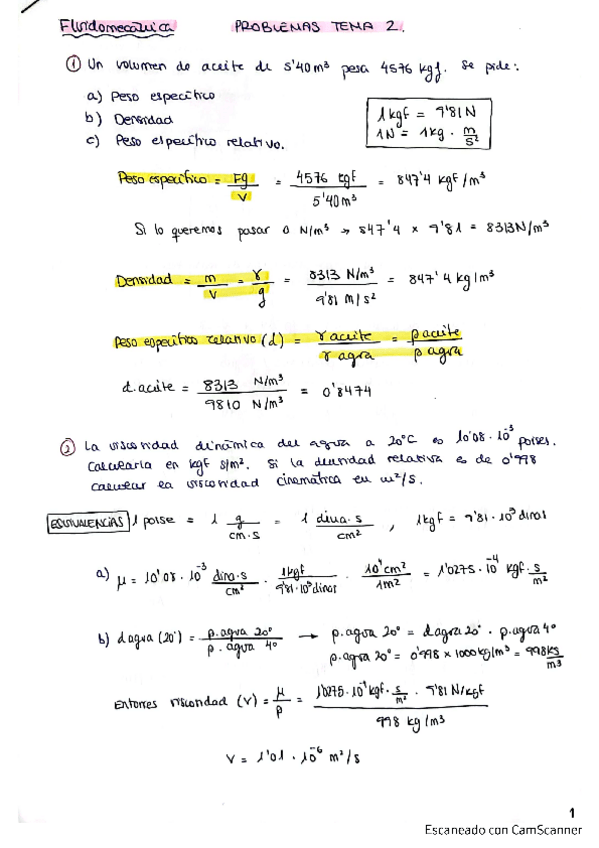 Fluidomecánica PROBLEMAS TEMA 2.
① Un volumen de aceite de 5'40 m³ pesa 4576 kgf. Se pide:
a) Peso específico
b) Densidad
c) Peso específico relativo.
1 kgf = 9'81 N
1N = 1kg · m/s²
Peso específico = Fg/V = 4576 kgf / 5'40 m³ = 847'4 kgf/m³
Si lo queremos pasar a N/m³ → 847'4 × 9'81 = 8313 N/m³
Densidad = m/V = γ/g = 8313 N/m³ / 9'81 m/s² = 847'4 kg/m³
Peso específico relativo (d) = γ aceite / γ agua = ρ aceite / ρ agua
d.aceite = 8313 N/m³ / 9810 N/m³ = 0'8474
② La viscosidad dinámica del agua a 20°C es 10'08·10⁻³ poises.
Calcularla en kgf s/m². Si la densidad relativa es de 0'998
calcular la viscosidad cinemática en m²/s.
EQUIVALENCIAS 1 poise = 1 g/cm·s = 1 dina·s/cm² , 1kgf = 9'81·10⁵ dinas
a) μ = 10'08·10⁻³ dina·s/cm² · 1kgf/9'81·10⁵ dinas · 10⁴cm²/1m² = 1'0275·10⁻⁴ kgf·s/m²
b) d agua (20°) = ρ.agua 20° / ρ.agua 4° → ρ.agua 20° = d agua 20° · ρ.agua 4°
ρ.agua 20° = 0'998 × 1000 kg/m³ = 998 kg/m³
Entonces viscosidad (ν) = μ/ρ = 1'0275·10⁻⁴ kgf·s/m² · 9'81 N/kgf / 998 kg/m³
ν = 1'01 · 10⁻⁶ m²/s
1
Escaneado con CamScanner